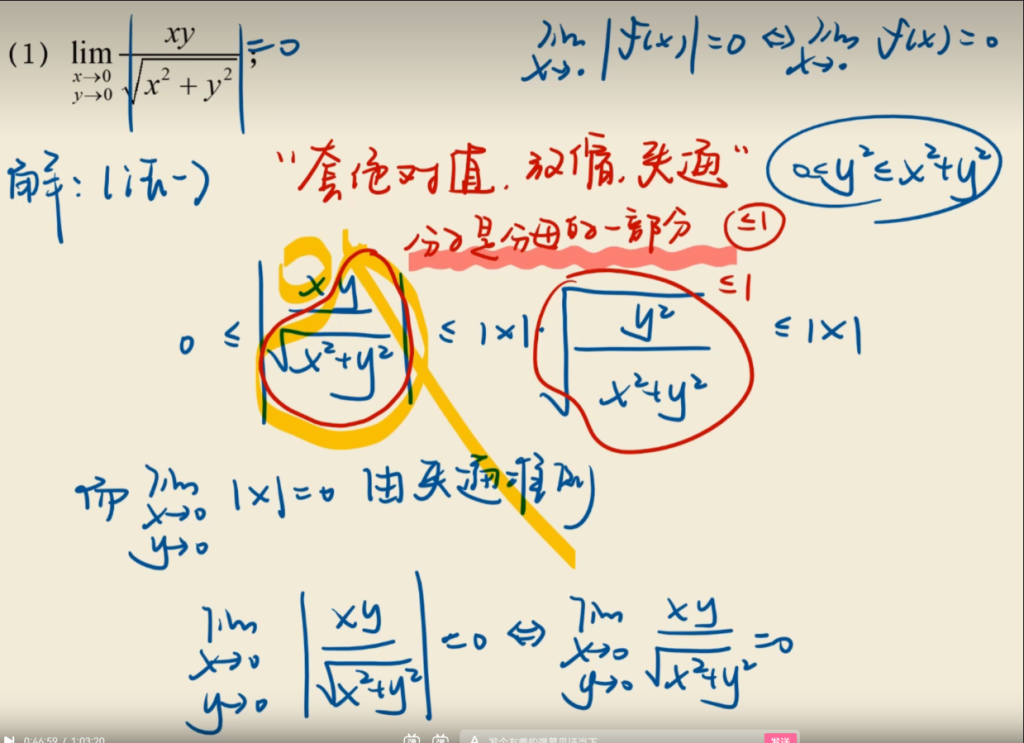 (1) lim x→0 y→0 |xy / √(x² + y²)| = 0 ;
lim x→0 |f(x)| = 0 ⇔ lim x→0 f(x) = 0
解: (法一)
"套绝对值, 放缩, 夹逼"
0 ≤ y² ≤ x²+y²
分子是分母的一部分 ≤1
0 ≤ |xy / √(x²+y²)| ≤ |x|·√(y² / (x²+y²)) ≤ |x|
≤1
而 lim x→0 y→0 |x| = 0 由夹逼准则
lim x→0 y→0 |xy / √(x²+y²)| = 0 ⇔ lim x→0 y→0 xy / √(x²+y²) = 0
0:46:59 / 1:03:20
弹 弹 A 发个友善的弹幕见证当下 发送